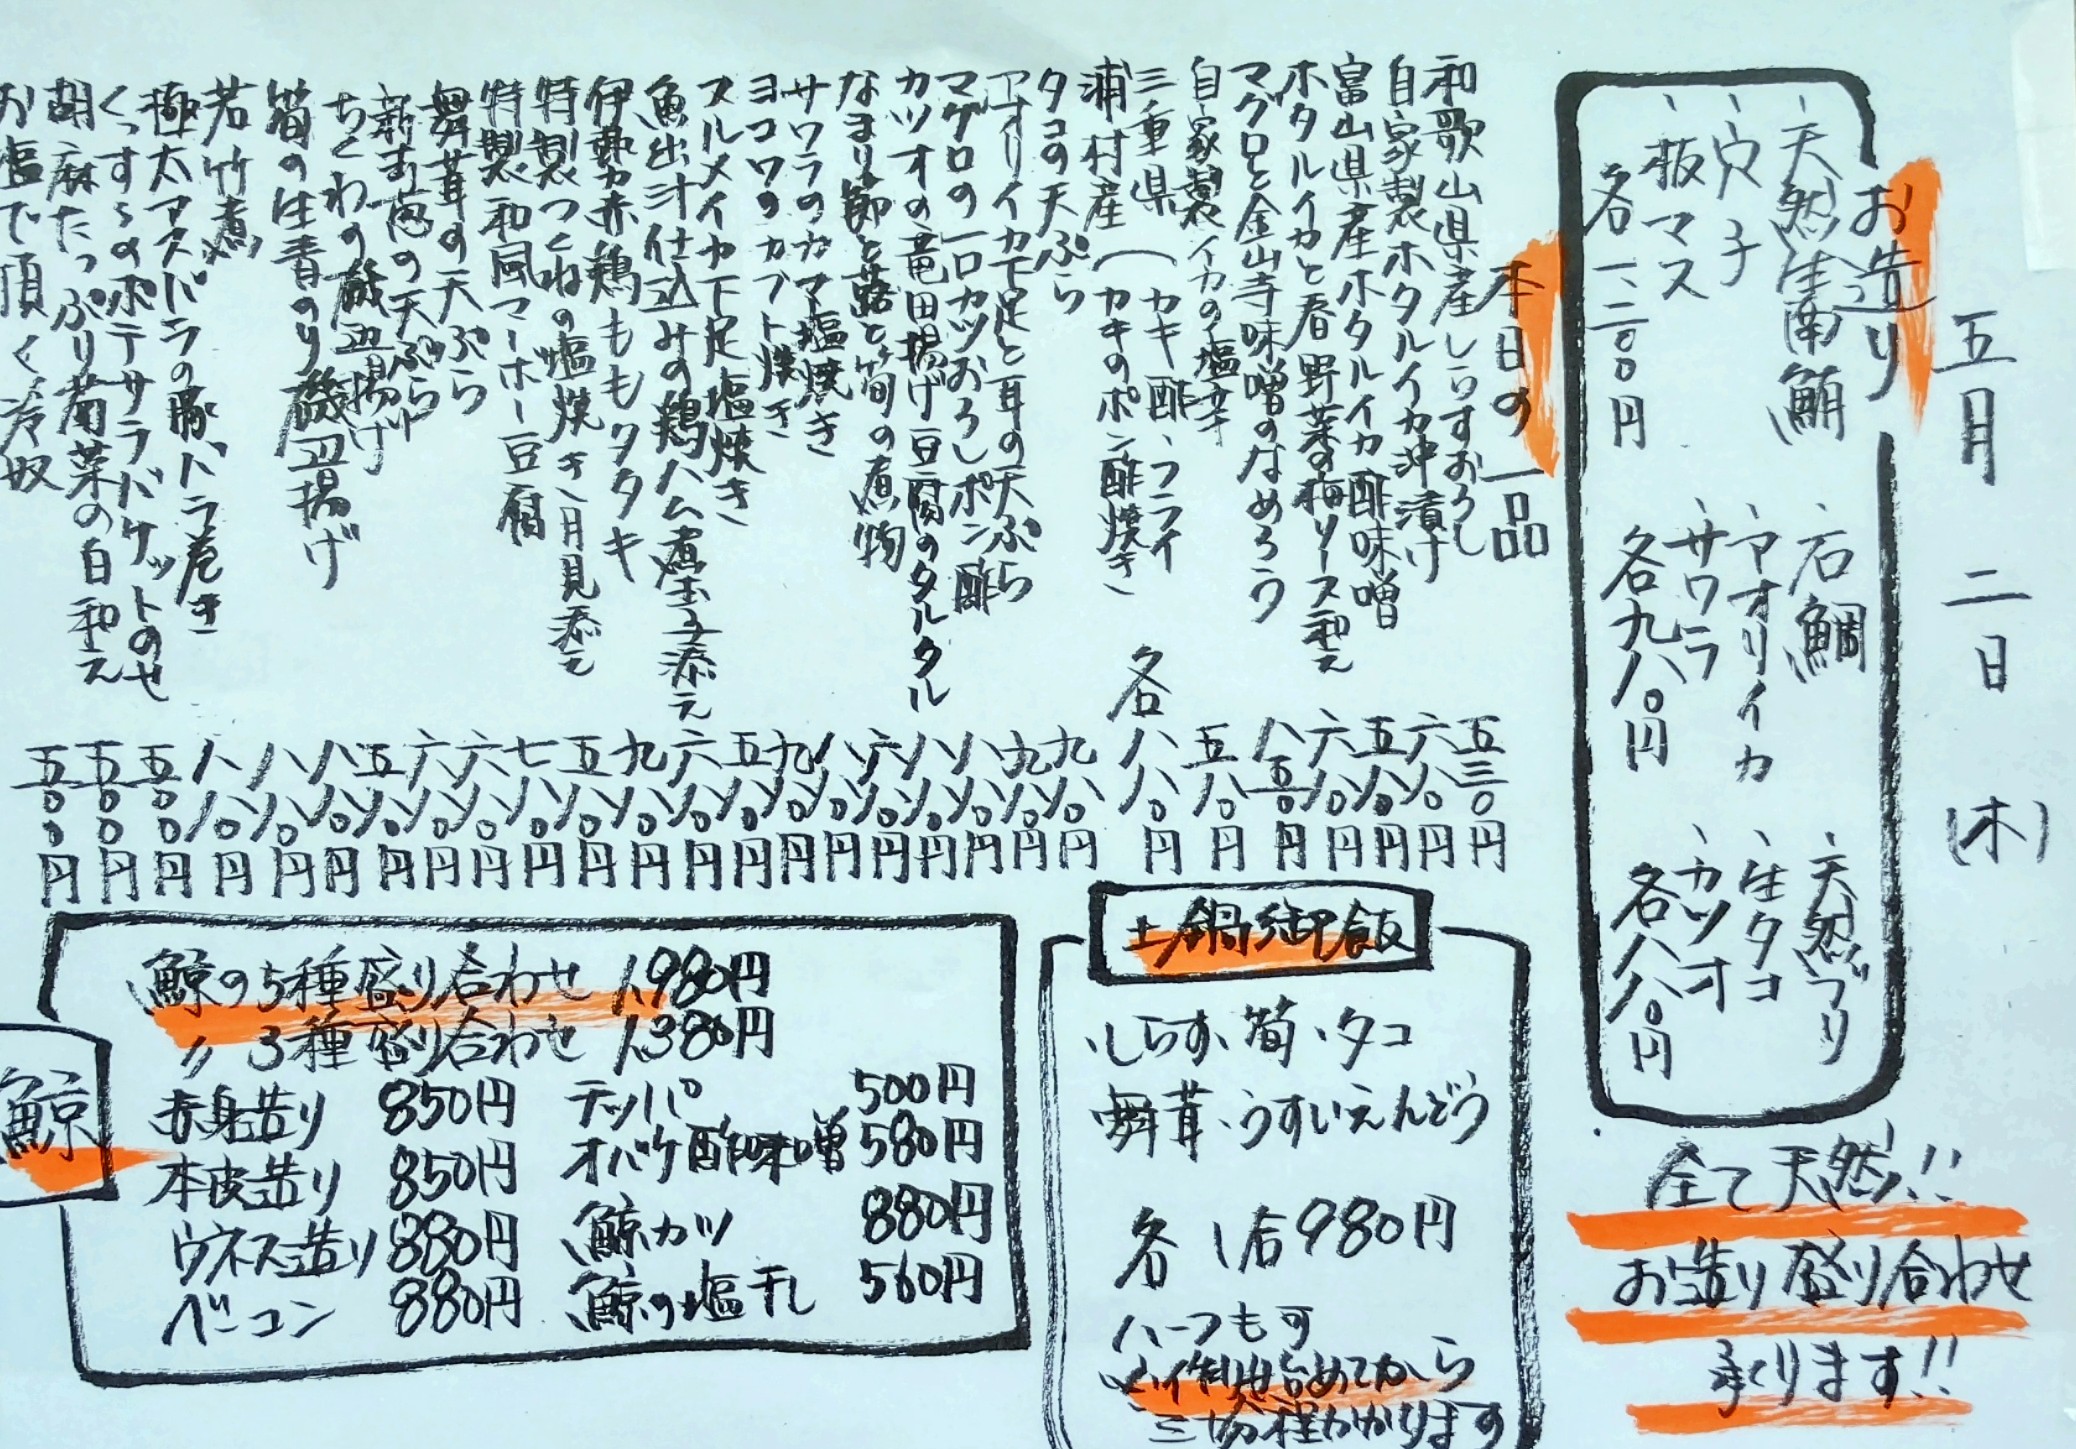 五月二日(木)
お造り
、天然生南鮪
、穴子
、板マス
各一、二〇〇円
、石鯛
、アオリイカ
、サワラ
各九八〇円
、天然ブリ
、生タコ
、カツオ
各八八〇円
全て天然!!
お造り盛り合わせ
承ります!!
本日の一品
和歌山県産しらすおろし 五三〇円
自家製ホタルイカ沖漬け 六八〇円
富山県産ホタルイカ酢味噌 五八〇円
ホタルイカと春野菜の梅ソース和え 六八〇円
マグロと金山寺味噌のなめろう 八五〇円
自家製イカの塩辛 五八〇円
三重県
浦村産
(カキ酢、フライ
(カキのポン酢焼き 各八八〇円
タコの天ぷら 九八〇円
アオリイカ下足と耳の天ぷら 九八〇円
マグロの一口カツおろしポン酢 八八〇円
カツオの竜田揚げ豆腐のタルタル 八八〇円
なまり節と蕗と筍の煮物 六八〇円
サワラのカマ塩焼き 八八〇円
ヨコワのカブト焼き 九八〇円
スルメイカ下足塩焼き 五八〇円
魚出汁仕込みの鶏ハム煮玉子添え 六八〇円
伊勢赤鶏ももタタキ 九八〇円
特製つくねの塩焼き、月見添え 五八〇円
特製和風マーボー豆腐 七八〇円
舞茸の天ぷら 六八〇円
新玉葱の天ぷら 六八〇円
ちくわの磯辺揚げ 五八〇円
筍の生青のり磯辺揚げ 八八〇円
若竹煮 八八〇円
極太アスパラの豚バラ巻き 八八〇円
くっすぅのポテサラバケットのせ 五〇〇円
胡麻たっぷり菊菜の白和え 五〇〇円
お塩で頂く冷奴 五〇〇円
土鍋御飯
、しらす、筍、タコ
舞茸、うすいえんどう
各1合980円
ハーフも可
三十分程かかります
鯨
鯨の5種盛り合わせ 1,980円
〃 3種盛り合わせ 1,380円
赤身造り 850円
本皮造り 850円
ウネス造り 880円
ベーコン 880円
テッパ 500円
オバケ酢味噌 580円
鯨カツ 880円
鯨の塩干し 560円